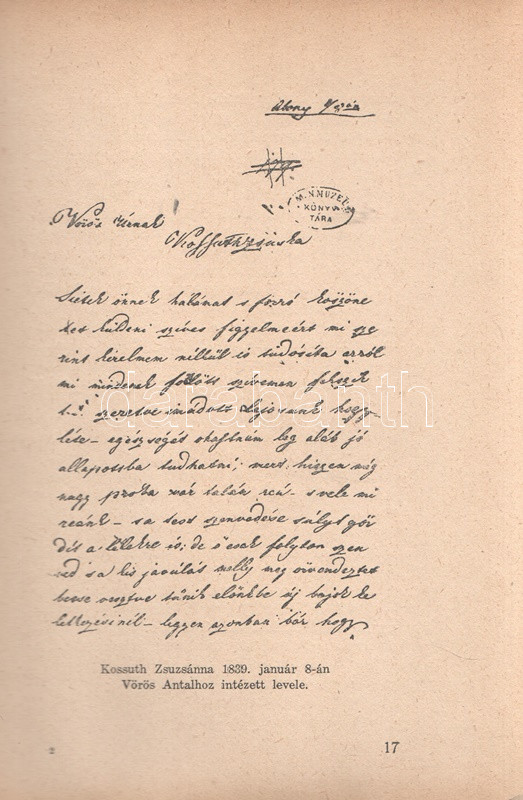 Vörös Úrnak
M. N. MUZEUM
KÖNYV
TÁRA
Kossuth Zsuska
Sietek önnek hálámat s forró köszöne
tet küldeni szíves figyelmeért mi sze
rint kérelmem nélkül is tudósíta arról
mi mindenek fölött szívemen fekszik
szeretve imádott Lajosunk hogy
léte - egésségét ohajtnám leg alább jó
állapotba tudhatni; mert hiszen még
nagy proba vár talán reá - s vele mi
reánk - s a test szenvedése súlyt gör
dít a lélekre is; de ő csak folyton szen
ved s a kis javulás melly meg örvendeztet
veszve tűnik előnkbe új bajok ke
letkezésénél - legyen azonban bár hogy
darabanth
Kossuth Zsuzsánna 1839. január 8-án
Vörös Antalhoz intézett levele.
2
17